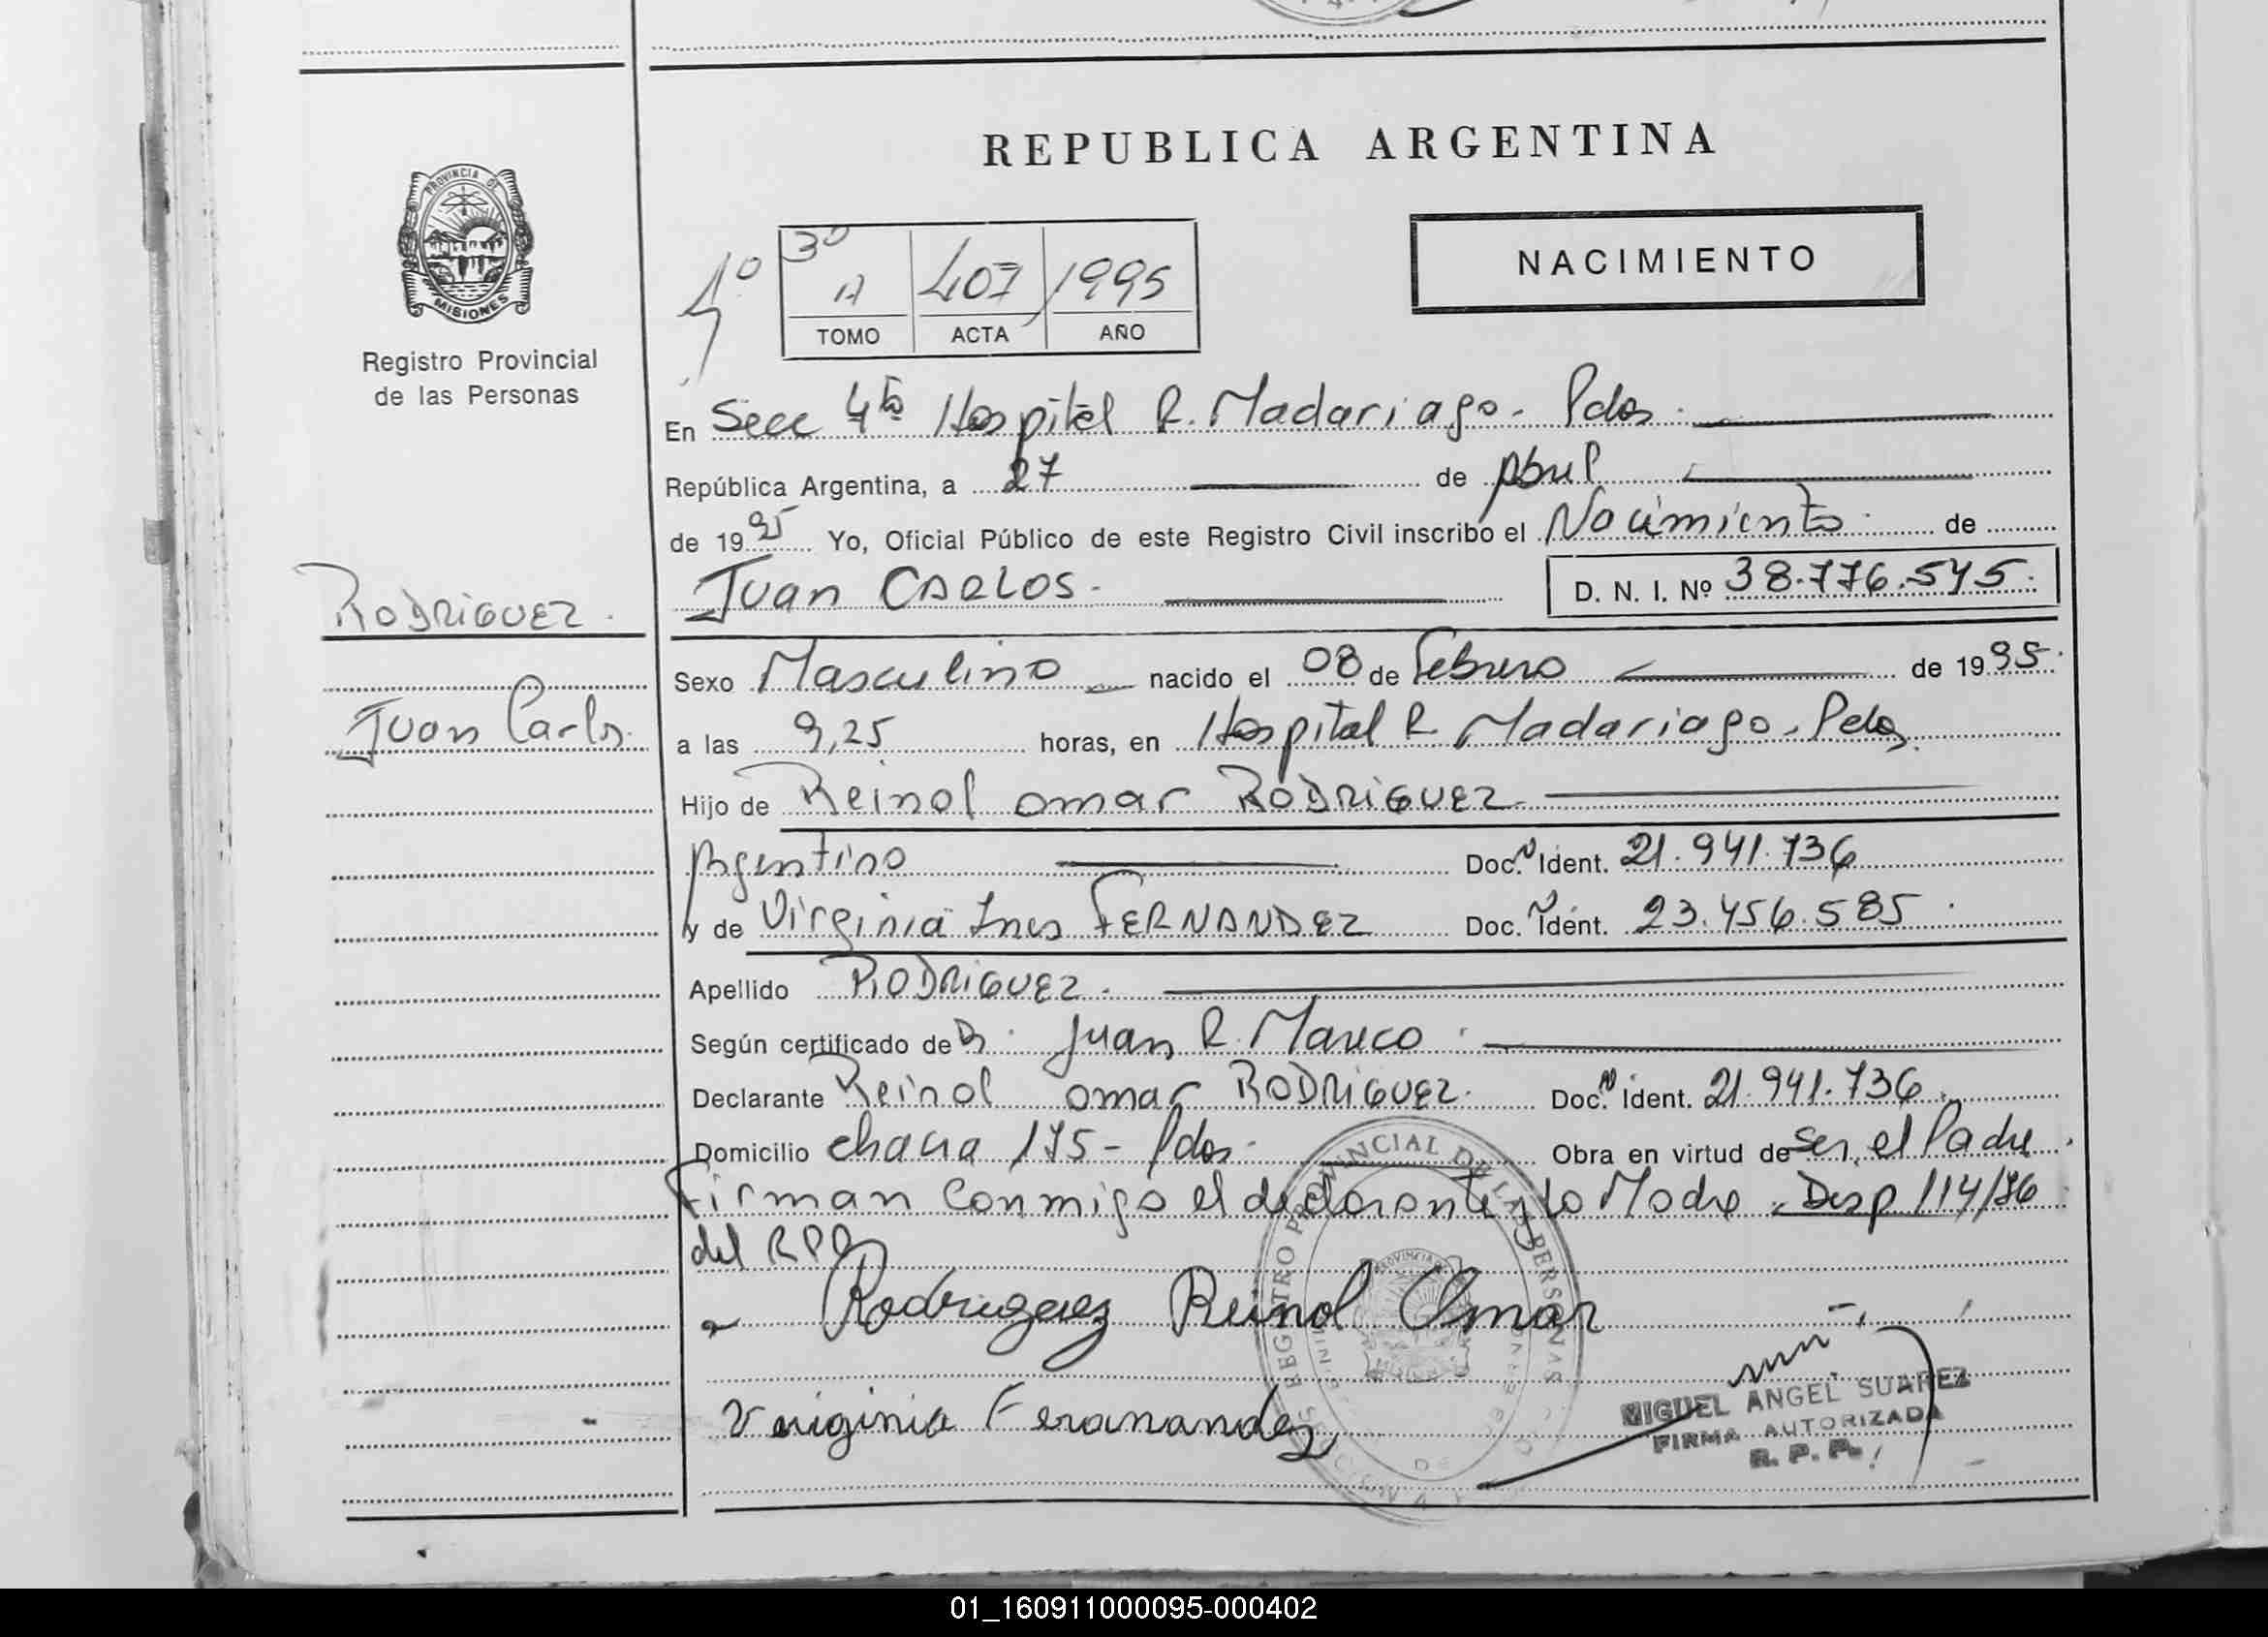 REPUBLICA ARGENTINA
PROVINCIA DE
MISIONES
Registro Provincial
de las Personas
NACIMIENTO
1º
3º A 407 1995
TOMO ACTA AÑO
En Secc 4ta Hospital R. Madariaga - Pdas.
República Argentina, a 27 de Abril
de 1995 Yo, Oficial Público de este Registro Civil inscribo el Nacimiento de
Juan CARLOS - D. N. I. Nº 38.776.545
RODRIGUEZ
Juan Carlos
Sexo Masculino nacido el 08 de Febrero de 1995
a las 9,25 horas, en Hospital R. Madariaga - Pdas.
Hijo de Reinol omar RODRIGUEZ
Argentino Doc. N Ident. 21.941.736
y de Virginia Ines FERNANDEZ Doc. N Ident. 23.456.585
Apellido RODRIGUEZ.
Según certificado de Dr. Juan R. Mareco
Declarante Reinol omar RODRIGUEZ. Doc. N Ident. 21.941.736
Domicilio chacra 175 - Pdas. Obra en virtud de ser el Padre
Firman conmigo el declarante y la Madre. Disp 114/86
del RPP
Rodriguez Reinol Omar
Veriginia Feranandez
REGISTRO PROVINCIAL DE LAS PERSONAS
MIGUEL ANGEL SUAREZ
FIRMA AUTORIZADA
R. P. P.
01_160911000095-000402